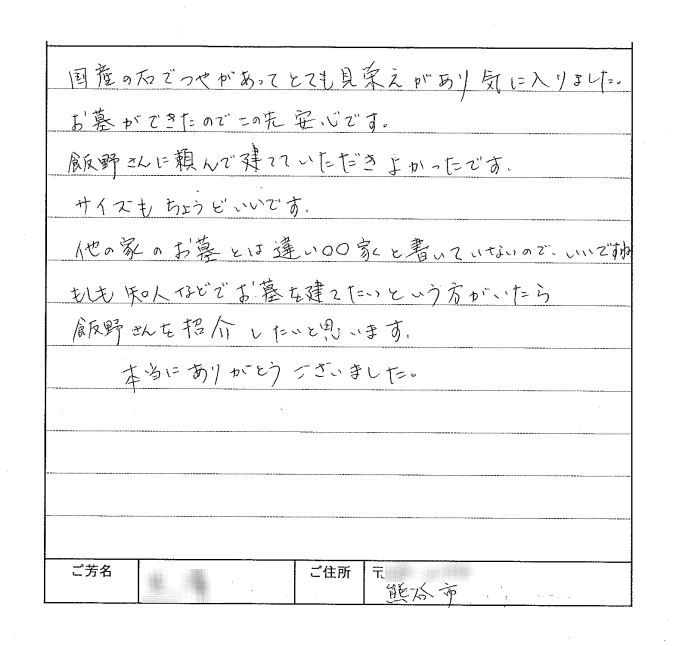 国産の石でつやがあってとても見栄えがあり気に入りました。
お墓ができたのでこの先安心です。
飯野さんに頼んで建てていただきよかったです。
サイズもちょうどいいです。
他の家のお墓とは違い〇〇家と書いていないので、いいですね
もしも知人などでお墓を建てたいという方がいたら
飯野さんを紹介したいと思います。
本当にありがとうございました。
ご芳名
ご住所 〒
熊谷市